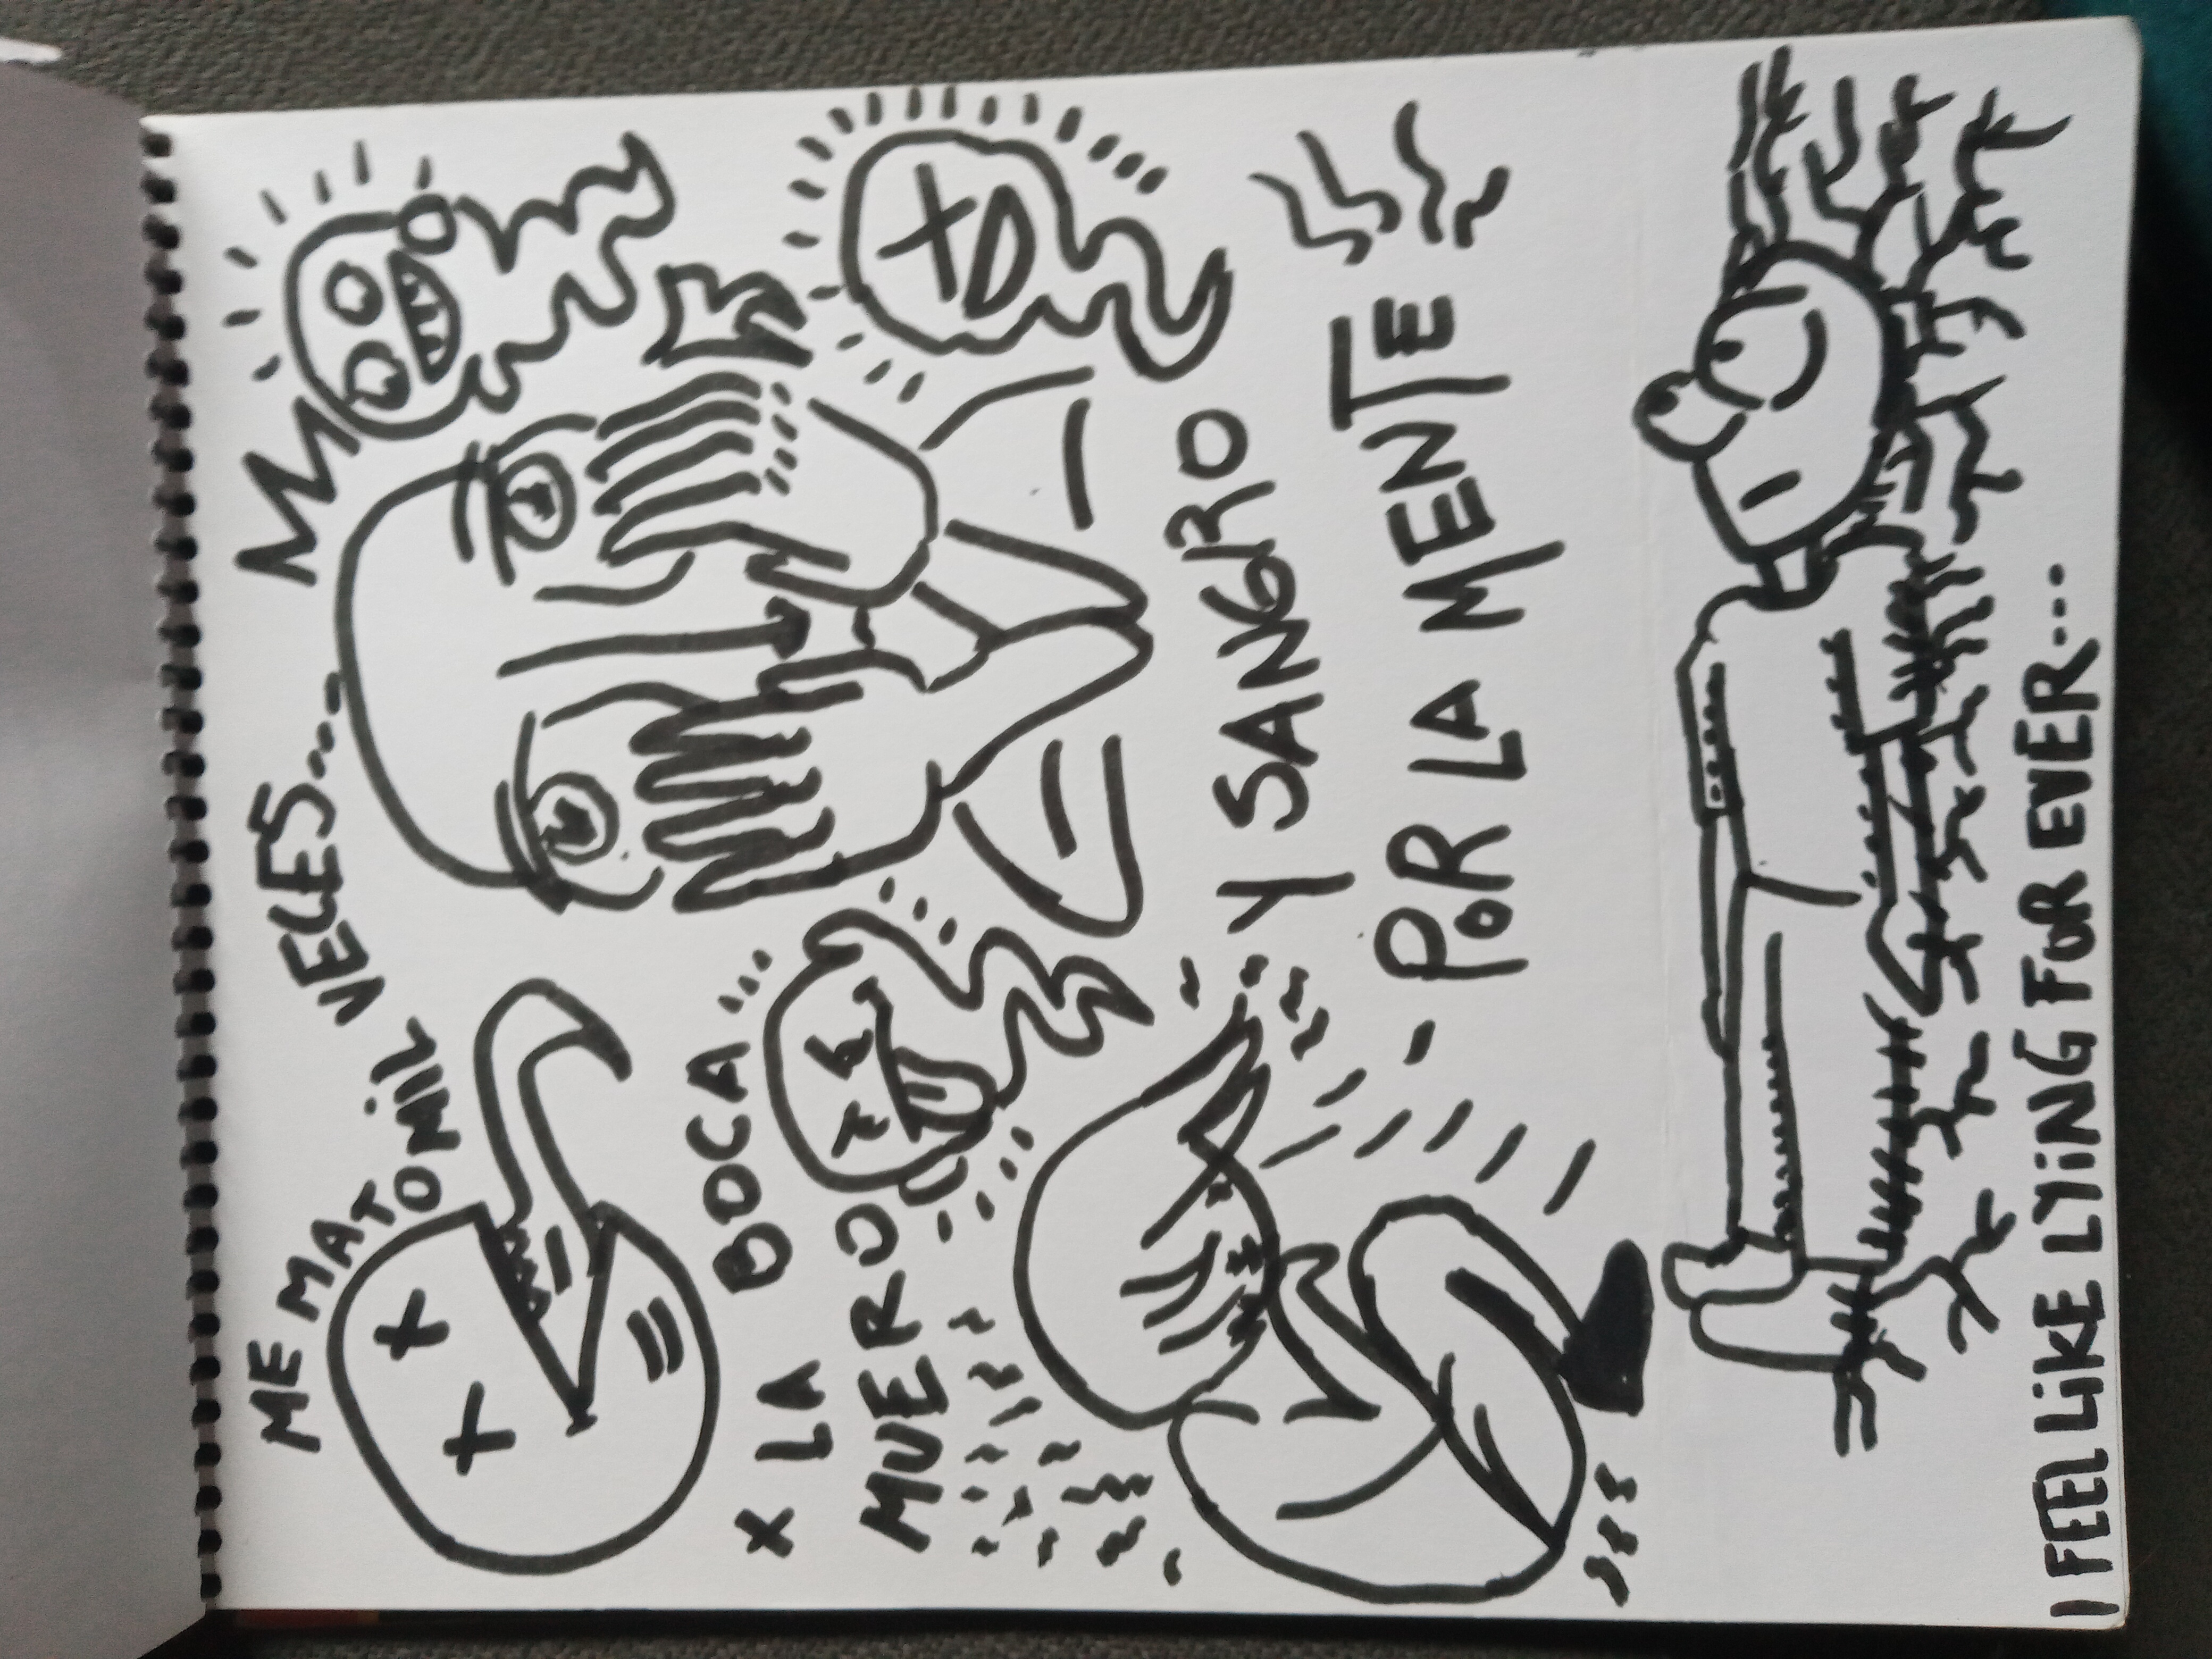 ME MATO MIL VECES...
X LA BOCA...
MUERO
Y SANGRO
POR LA MENTE
I FEEL LIKE LYING FOR EVER...